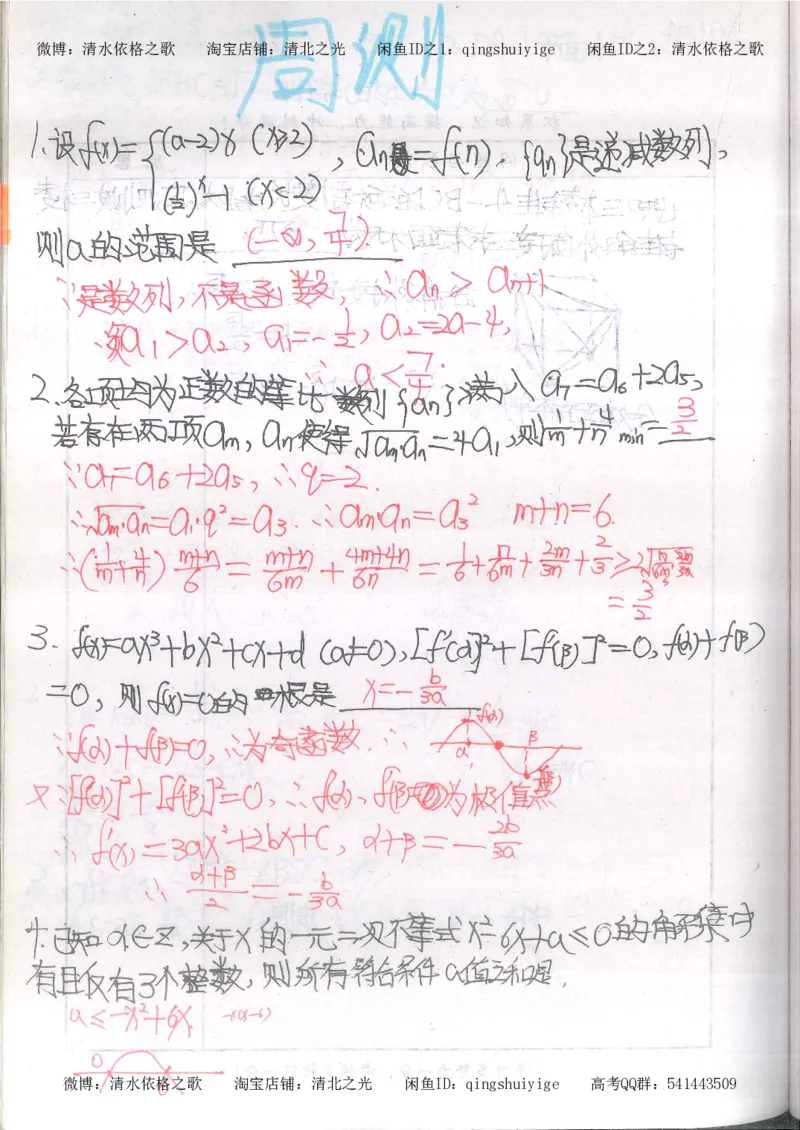 微博：清水依格之歌 淘宝店铺：清北之光 闲鱼ID之1：qingshuiyige 闲鱼ID之2：清水依格之歌
周测
1.设f(x)={(a-2)x (x≥2)
(½)ˣ-1 (x<2)
，an=f(n)，{an}是递减数列，
则a的范围是 (-∞, 7/4)
∵是数列，不是函数，∴an > an+1
须a1>a2，a1=-½，a2=2a-4，
∴ a<7/4.
2.各项均为正数的等比数列{an}满入 a7=a6+2a5，
若存在两项am，an使得√(am·an)=4a1，则1/m+4/n min=3/2
∵a7=a6+2a5，∴q=2.
∴√(am·an)=a1·q²=a3.∴am·an=a3² m+n=6.
∴(1/m+4/n) (m+n)/6 = (m+n)/6m + (4m+4n)/6n = 1/6+n/6m+2m/3n+2/3≥2√(n/6m·2m/3n)
=3/2
3. f(x)=ax³+bx²+cx+d (a≠0)，[f'(α)]²+[f'(β)]²=0，f(α)+f(β)
=0，则f(x)=0的一根是 x=-b/3a
∵f(α)+f(β)=0，∴为奇函数.∴
f(α) α β f(β)
又∵[f'(α)]²+[f'(β)]²=0，∴f(α)、f(β)为极值点
∴f'(x)=3ax²+2bx+c，α+β=-2b/3a
∴(α+β)/2=-b/3a
4.已知a∈Z，关于x的一元二次不等式x²-6x+a≤0的解集中
有且仅有3个整数，则所有符合条件a值之和是.
a≤-x²+6x. -x(x-6)
0 6
微博：清水依格之歌 淘宝店铺：清北之光 闲鱼ID：qingshuiyige 高考QQ群：541443509